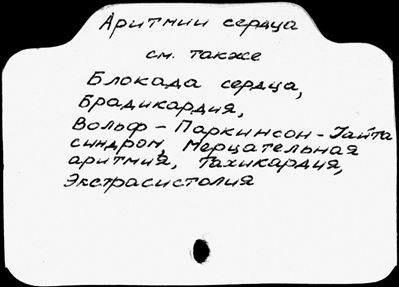 Аритмии сердца
см. также
Блокада сердца,
Брадикардия,
Вольф-Паркинсон-Уайта
синдром, Мерцательная
аритмия, Тахикардия,
Экстрасистолия